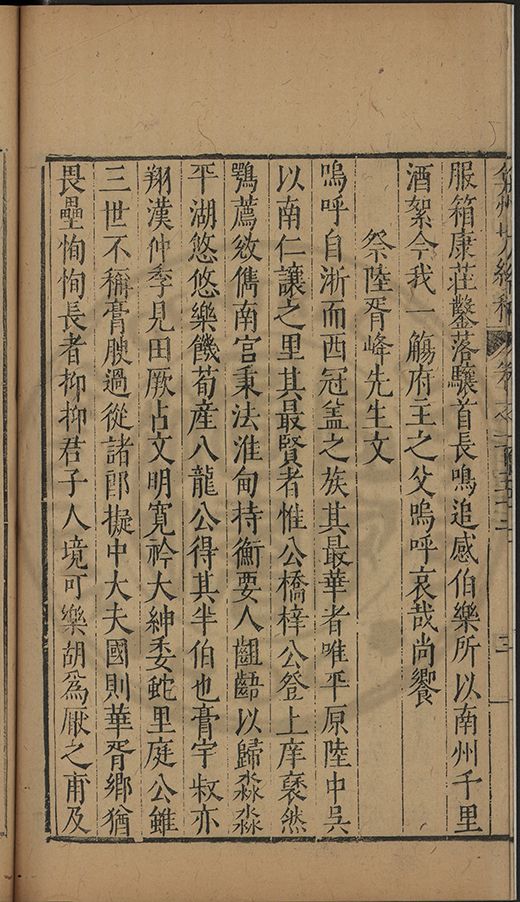 弇州山人續稿 卷之一百五十三 三
服箱康莊鑿落驤首長鳴追感伯樂所以南州千里
酒絮今我一觴府主之父嗚呼哀哉尚饗
祭陸胥峰先生文
嗚呼自浙而西冠盖之族其最華者唯平原陸中吳
以南仁讓之里其最賢者惟公橋梓公登上庠褎然
鶚薦效儁南官秉法淮甸持衡要人齟齬以歸淼淼
平湖悠悠樂饑荀産八龍公得其半伯也膏宇叔亦
翔漢仲季見田厥占文明寬衿大紳委蛇里庭公雖
三世不稱膏腴過從諸郎擬中大夫國則華胥鄉猶
畏壘恂恂長者抑抑君子人境可樂胡為厭之甫及